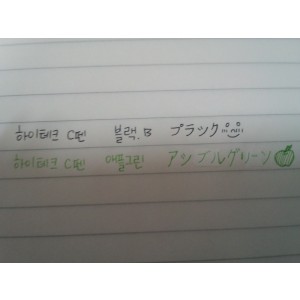 하이테크 C펜 블랙.B ブラック
하이테크 C펜 애플그린 アップルグリーン